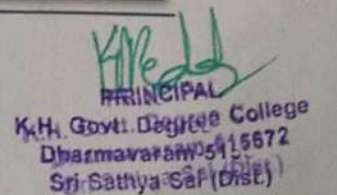 PRINCIPAL
K.H. Govt. Degree College
Dharmavaram 515672
Sri Sathya Sai (Dist)